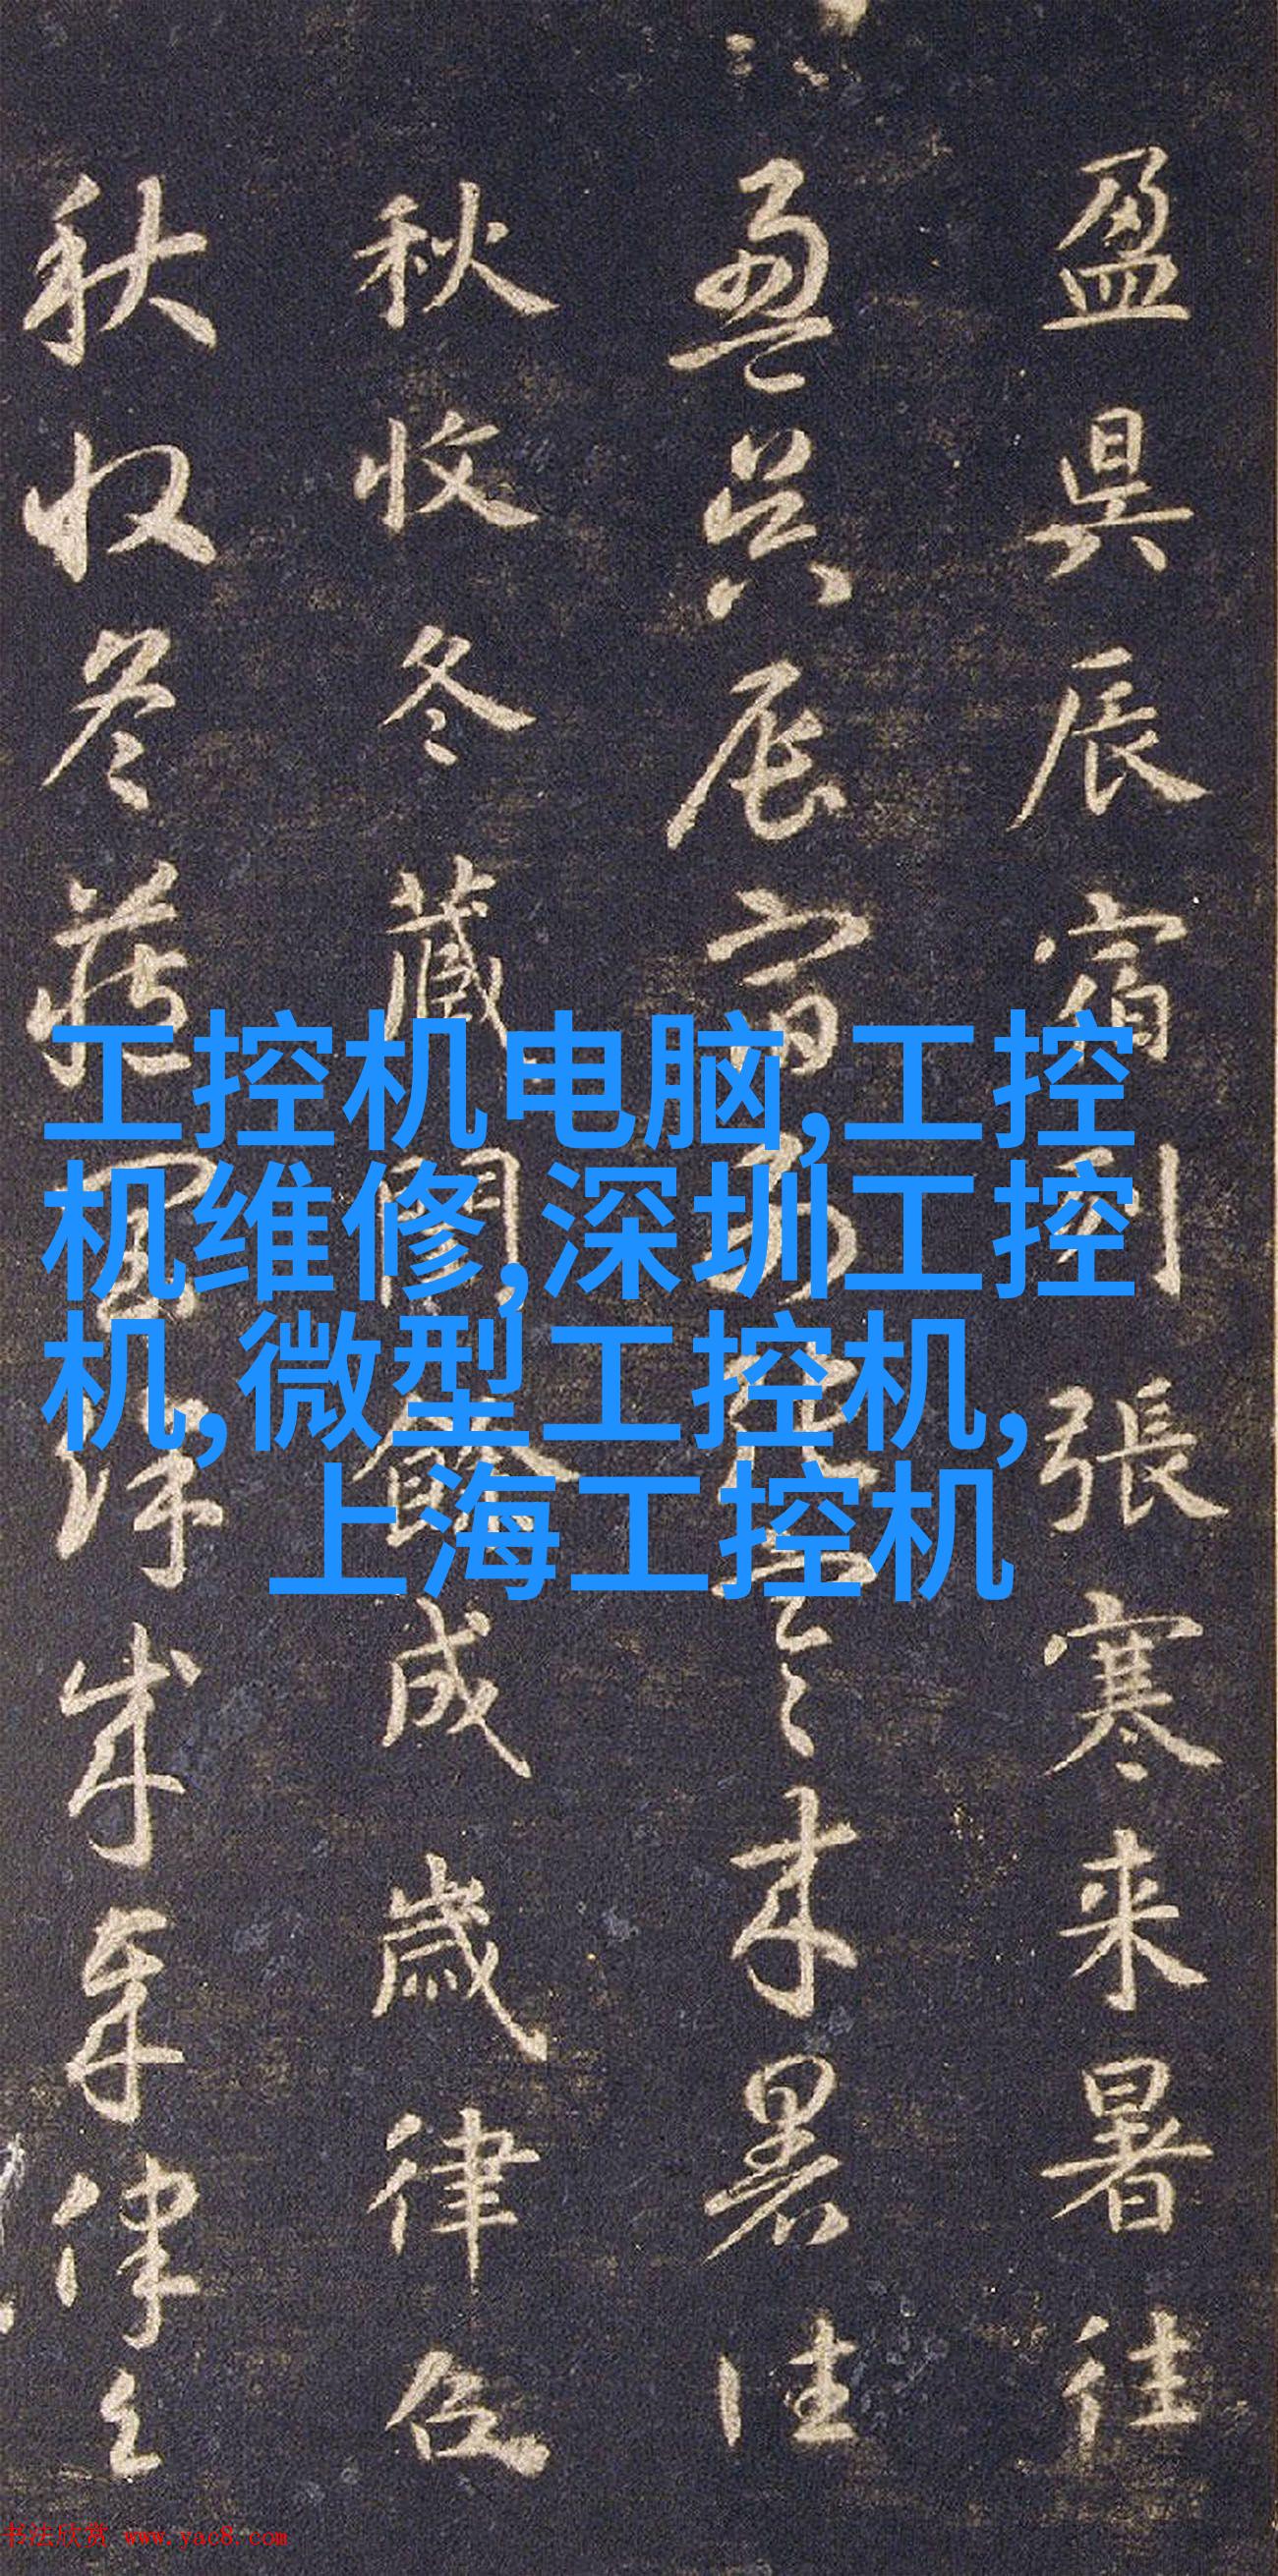 盈昃辰宿列張寒来暑往
盈昃辰宿列張寒来暑往
秋收冬藏閏餘成歲律呂
秋收冬藏閏餘成歲律呂
工控机电脑,工控
机维修,深圳工控
机,微型工控机,
上海工控机
书法欣赏 www.yac8.com